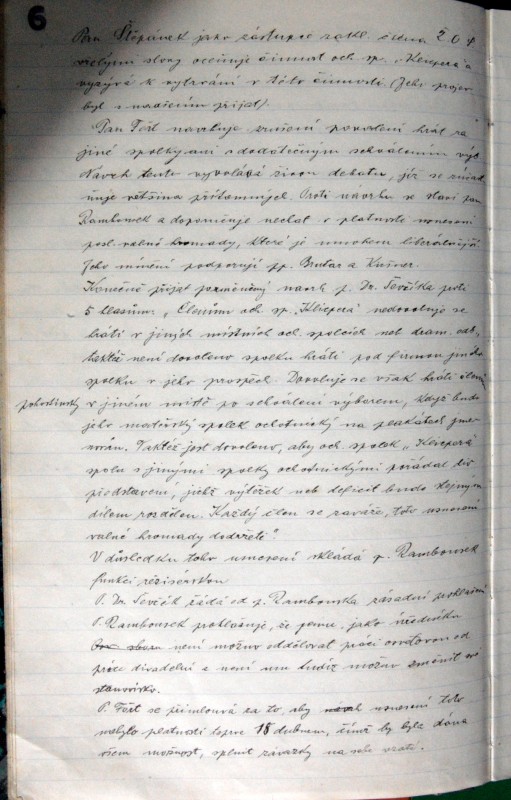 6
Pan Štěpánek jako zástupce zakl. člena Ž O F
vřelými slovy oceňuje činnost och. sp. „Klicpera" a
vyzývá k vytrvání v této činnosti. (Jeho projev
byl s nadšením přijat).
Pan Fořt navrhuje zrušení povolení hrát za
jiné spolky ani s dodatečným schválením výb.
Návrh tento vyvolává živou debatu, jíž se zúčast
ňuje většina přítomných. Proti návrhu se staví pan
Rambousek a doporučuje nechat v platnosti usnesení
posl. valné hromady, které je mnohem liberálnější.
Jeho mínění podporují pp. Brutar a Kušner.
Konečně přijat pozměněný návrh p. Dr. Ševčíka proti
5 hlasům: „Členům och. sp. „Klicpera" nedovoluje se
hráti v jiných místních och. spolcích neb dram. odb.,
taktéž není dovoleno spolku hráti pod firmou jiného
spolku v jeho prospěch. Dovoluje se však hráti členům
pohostinsky v jiném místě po schválení výborem, když bude
jeho mateřský spolek ochotnický na plakátech jme-
nován. Taktéž jest dovoleno, aby och. spolek „Klicpera"
spolu s jinými spolky ochotnickými pořádal div.
představení, jichž výtěžek neb deficit bude stejným
dílem rozdělen. Každý člen se zaváže, toto usnesení
valné hromady dodržeti".
V důsledku toho usnesení skládá p. Rambousek
funkci režisérskou
P. Dr. Ševčík žádá od p. Rambouska zásadní prohlášení
P. Rambousek prohlašuje, že jemu jako úředníku
není možno oddělovat práci od
práce divadelní a není mu tudíž možno změnit své
stanovisko.
P. Fořt se přimlouvá za to, aby usnesení toto
nabylo platnosti teprve 18 dubnem, čímž by byla dána
všem možnost, splnit závazky na sebe vzaté.